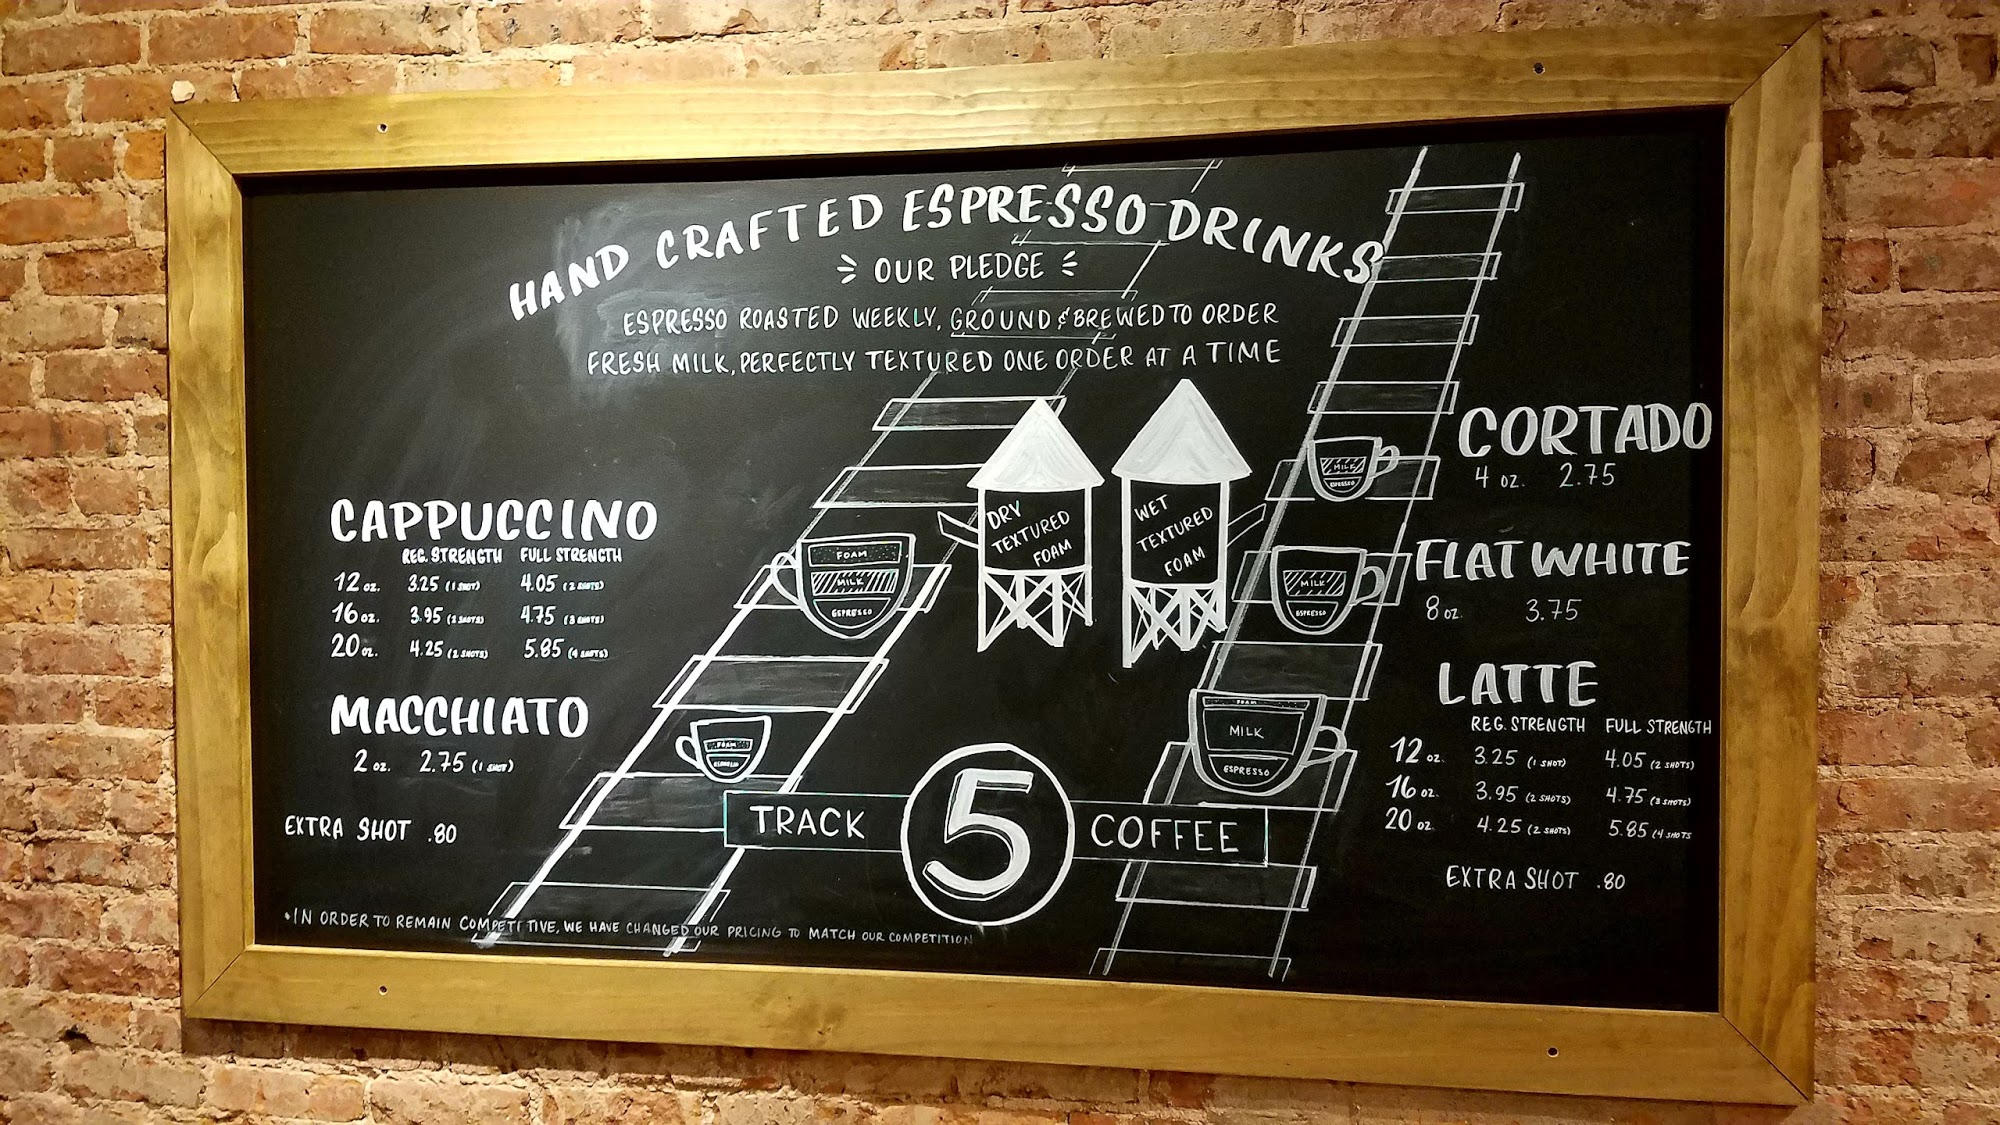 HAND CRAFTED ESPRESSO DRINKS
OUR PLEDGE
ESPRESSO ROASTED WEEKLY, GROUND & BREWED TO ORDER
FRESH MILK, PERFECTLY TEXTURED ONE ORDER AT A TIME
CAPPUCCINO
REG. STRENGTH FULL STRENGTH
12 oz. 3.25 (1 SHOT) 4.05 (2 SHOTS)
16 oz. 3.95 (2 SHOTS) 4.75 (3 SHOTS)
20 oz. 4.25 (2 SHOTS) 5.85 (4 SHOTS)
MACCHIATO
2 oz. 2.75 (1 SHOT)
EXTRA SHOT .80
FOAM
MILK
ESPRESSO
FOAM
ESPRESSO
DRY
TEXTURED
FOAM
WET
TEXTURED
FOAM
MILK
ESPRESSO
MILK
ESPRESSO
FOAM
MILK
ESPRESSO
CORTADO
4 oz. 2.75
FLAT WHITE
8 oz. 3.75
LATTE
REG. STRENGTH FULL STRENGTH
12 oz. 3.25 (1 SHOT) 4.05 (2 SHOTS)
16 oz. 3.95 (2 SHOTS) 4.75 (3 SHOTS)
20 oz. 4.25 (2 SHOTS) 5.85 (4 SHOTS
EXTRA SHOT .80
TRACK 5 COFFEE
•IN ORDER TO REMAIN COMPETITIVE, WE HAVE CHANGED OUR PRICING TO MATCH OUR COMPETITION